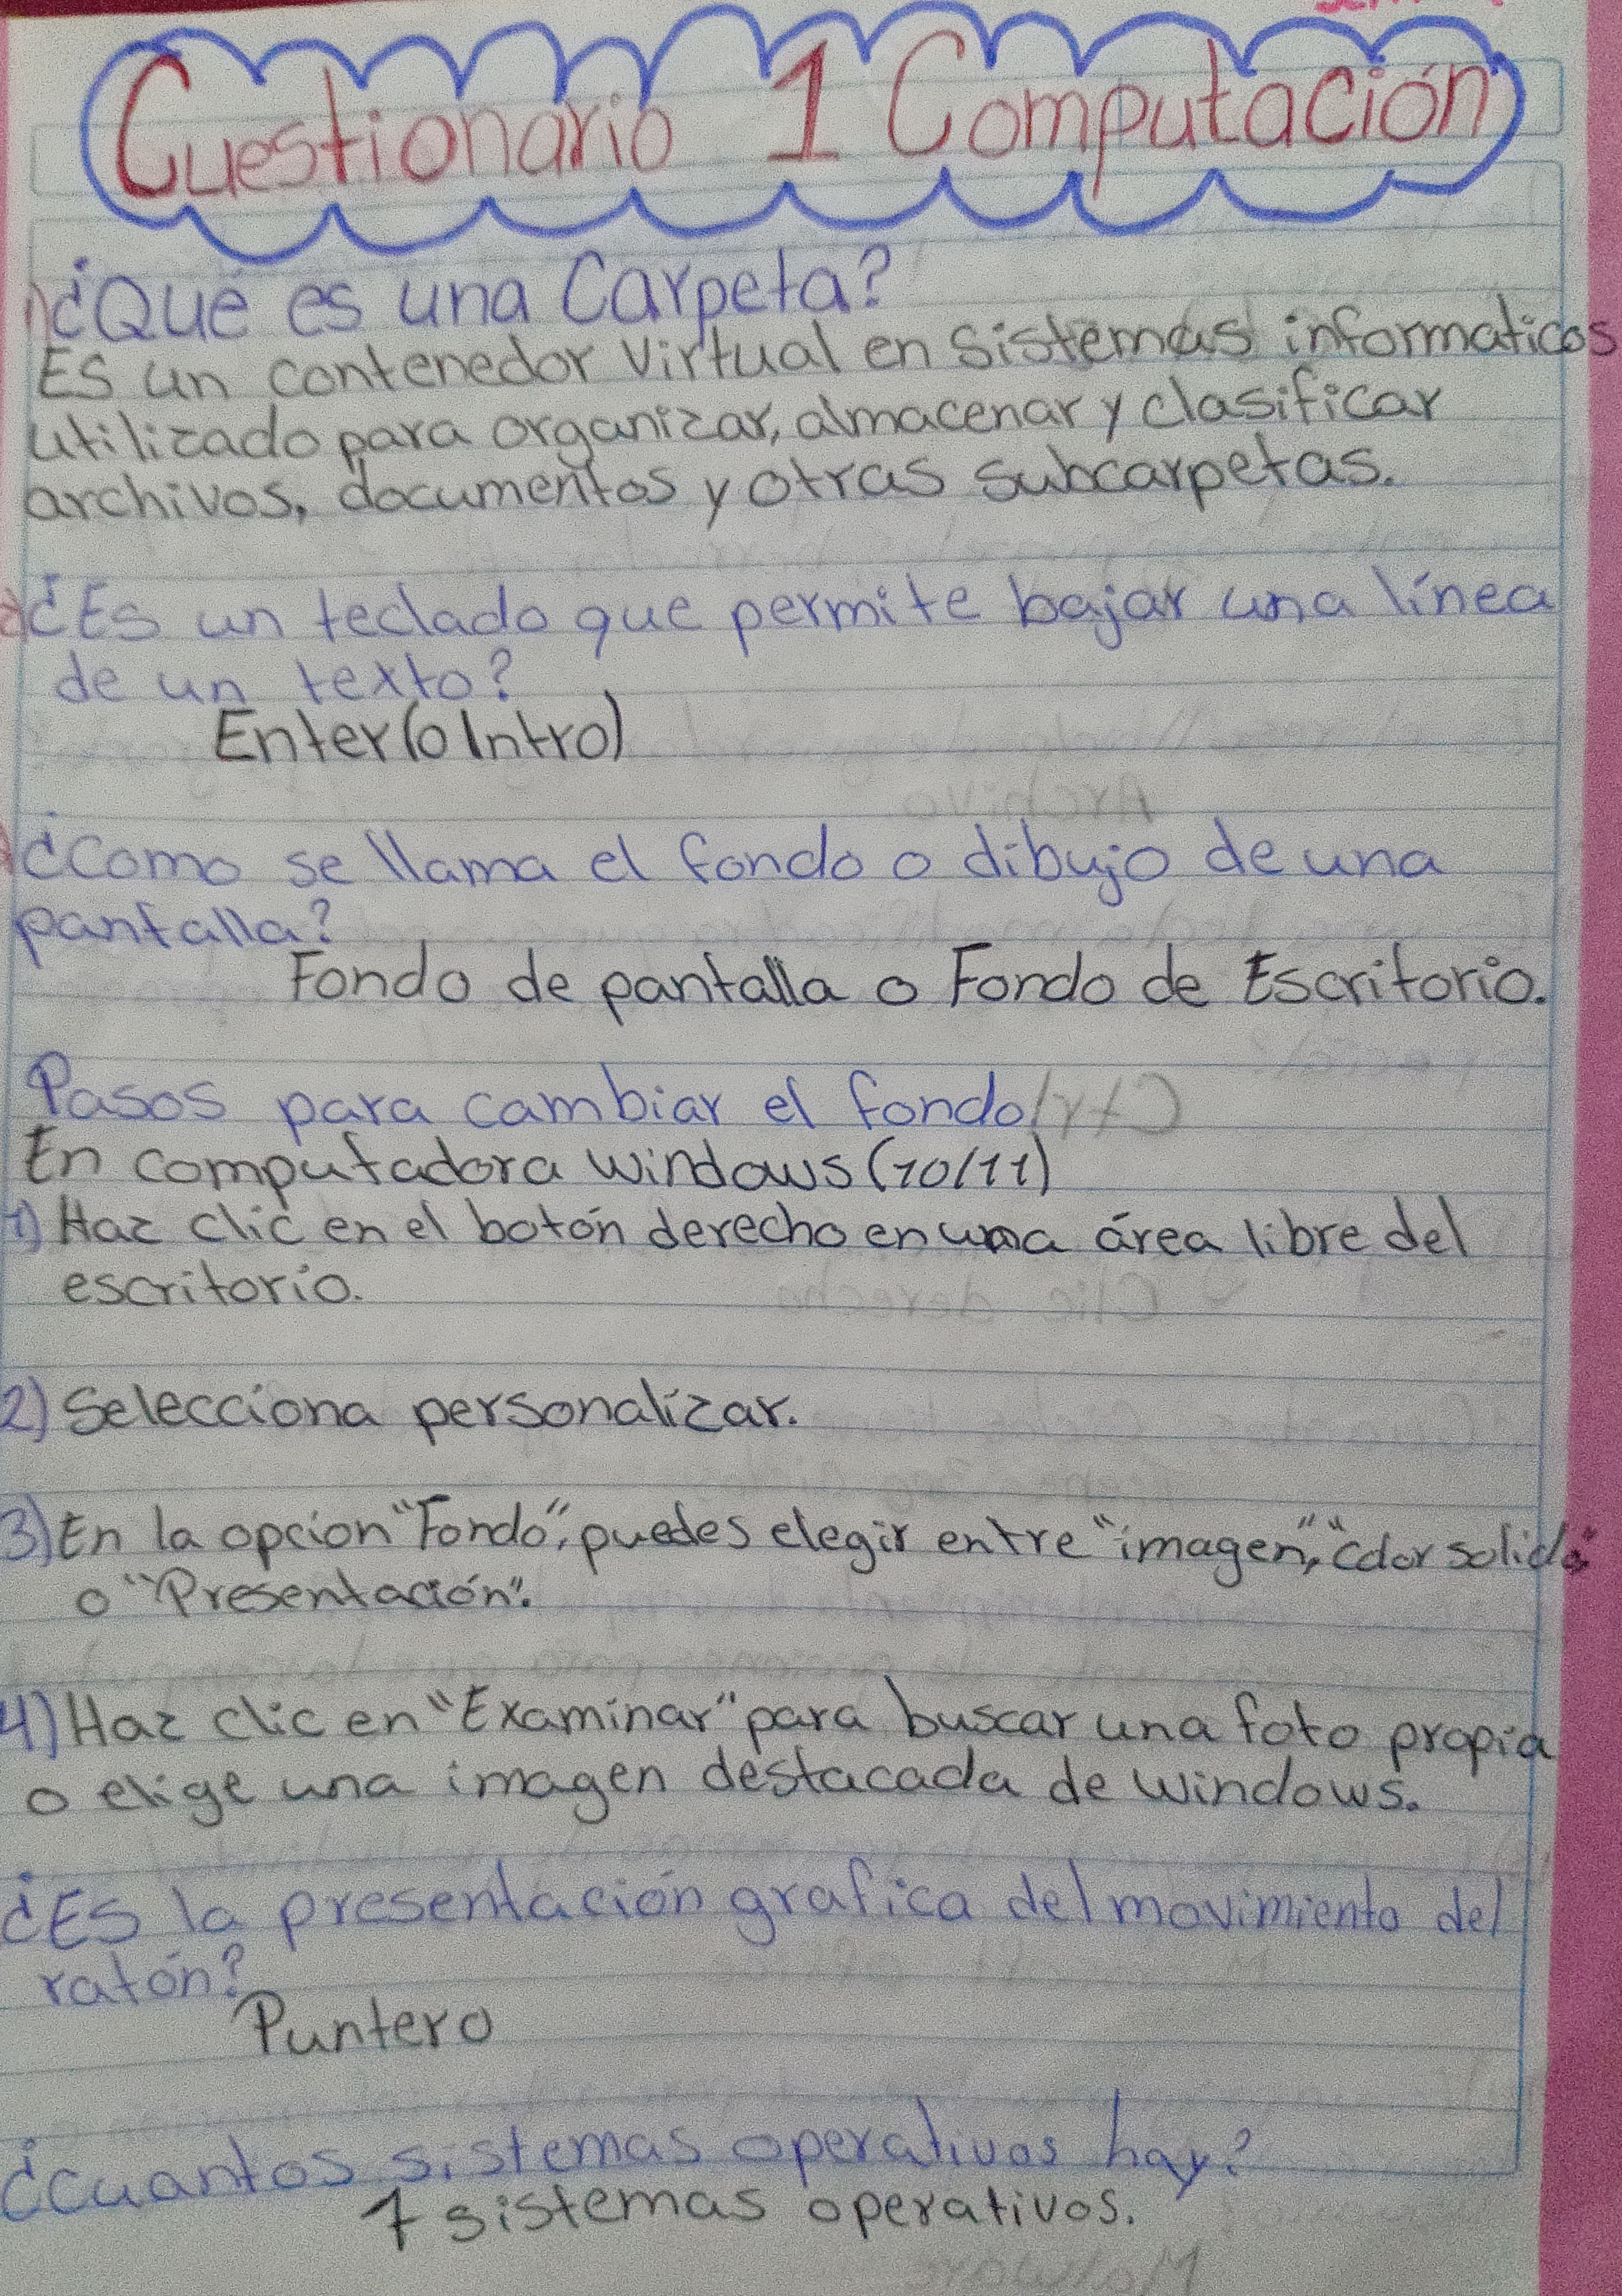 Cuestionario 1 Computación
1) ¿Qué es una Carpeta?
Es un contenedor virtual en sistemas informaticos
utilizado para organizar, almacenar y clasificar
archivos, documentos y otras subcarpetas.
¿Es un teclado que permite bajar una línea
de un texto?
Enter (o Intro)
¿Como se llama el fondo o dibujo de una
pantalla?
Fondo de pantalla o Fondo de Escritorio.
Pasos para cambiar el fondo
En computadora windows (10/11)
1) Haz clic en el botón derecho en una área libre del
escritorio.
2) Selecciona personalizar.
3) En la opcion "Fondo", puedes elegir entre "imagen", "color solido"
o "Presentación".
4) Haz clic en "Examinar" para buscar una foto propia
o elige una imagen destacada de windows.
¿Es la presentación grafica del movimiento del
ratón?
Puntero
¿Cuantos sistemas operativos hay?
sistemas operativos.